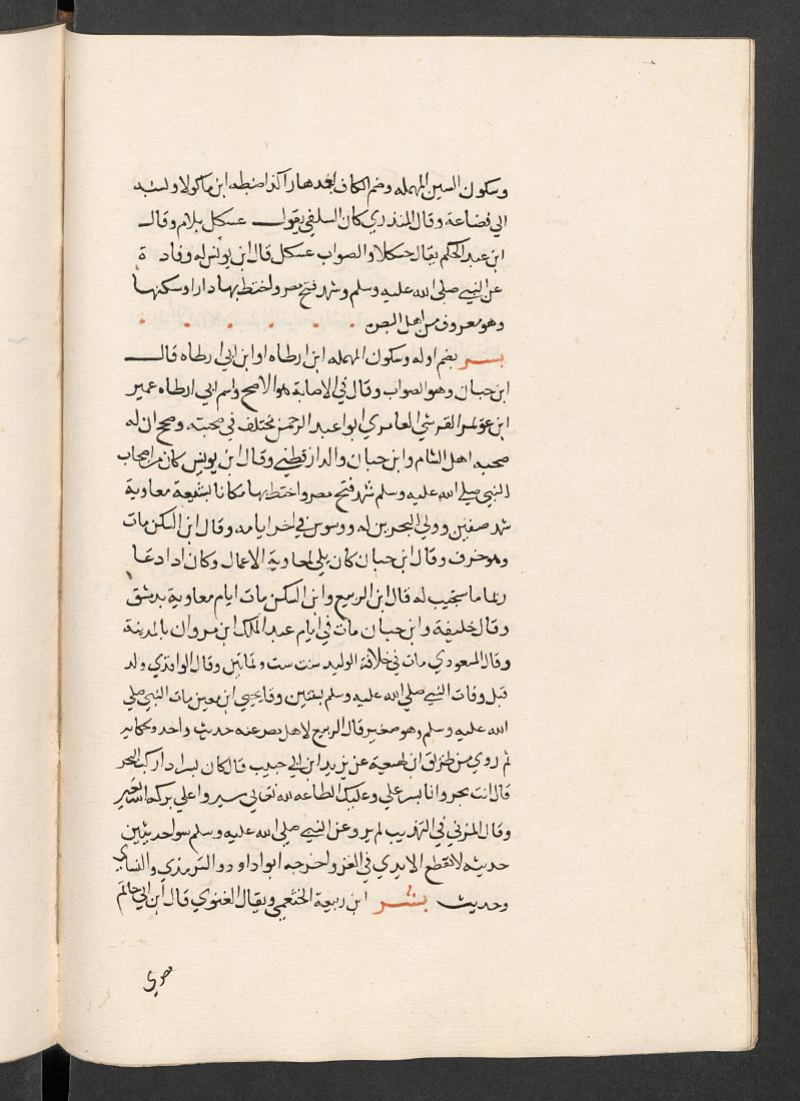 وسكون السين المهمله وضم الكاف بعدها را كذا ضبطه ابن ماكولا ونسبه
الي قضاعة وقال المنذري كان السلفي يقول عسكل بلام وقال
ابن عبد الحكم يقال حسكلا والصواب عسكل قال ابن يونس له وفادة
عن النبي صلي الله عليه وسلم وشهد فتح مصر واختط بها دارا وسكنها
وهو معروف من اهل البصره
بسر بضم اوله وسكون المهمله ابن ارطاه او ابن ابي ارطاه قال
ابن حبان وهو الصواب وقال في الاصابة هو الاصح واسم ابي ارطاه عمير
ابن عويمر القرشي العامري ابوا عبد الرحمن مختلف في صحبته وصح ان له
صحبه اهل الشام وابن حبان والدارقطني وقال ابن يونس كان من اصحاب
النبي صلي الله عليه وسلم شهد فتح مصر واختط بها وكان شيعة معاوية
شهد صفين وولي البحرين له ووسوس في اخر ايامه وقال ابن السكن مات
وهو خرف وقال ابن حبان كان يلي لمعاوية الاعمال وكان اذا دعا
ربما استجيب له قال ابن الربيع وابن السكن مات ايام معاوية بدمشق
وقال خليفة وابن حبان مات في ايام عبد الملك ابن مروان بالمدينة
وقال المسعودي مات في خلافة الوليد سنت ست وثمانين وقال الواقدي ولد
قبل وفات النبي صلي الله عليه وسلم بسنتين وقا يحيي ابن معين مات النبي صلي
الله عليه وسلم وهو صغير قال الربيع لاهل مصر عنه حديث واحد وحكايه
ثم روي من طريق ابن لهيعة عن يزيد ابن ابي حبيب قال كان بسر اذا ركب البحر
قال انت بحر وانا بسر علي وعليك الطاعه لله تعالي سيروا علي بركه الله
وقال المزني في التهذيب لم يرو عن النبي صلي الله عليه وسلم سوا حديثين
حديثه لا تقطع الايدي في الغزو اخرجه ابوا داوود والترمذي والنساي
وحديث بشر ابن ربيعة الخثعمي ويقال الغنوي قال ابن ابي حاتم
مصري